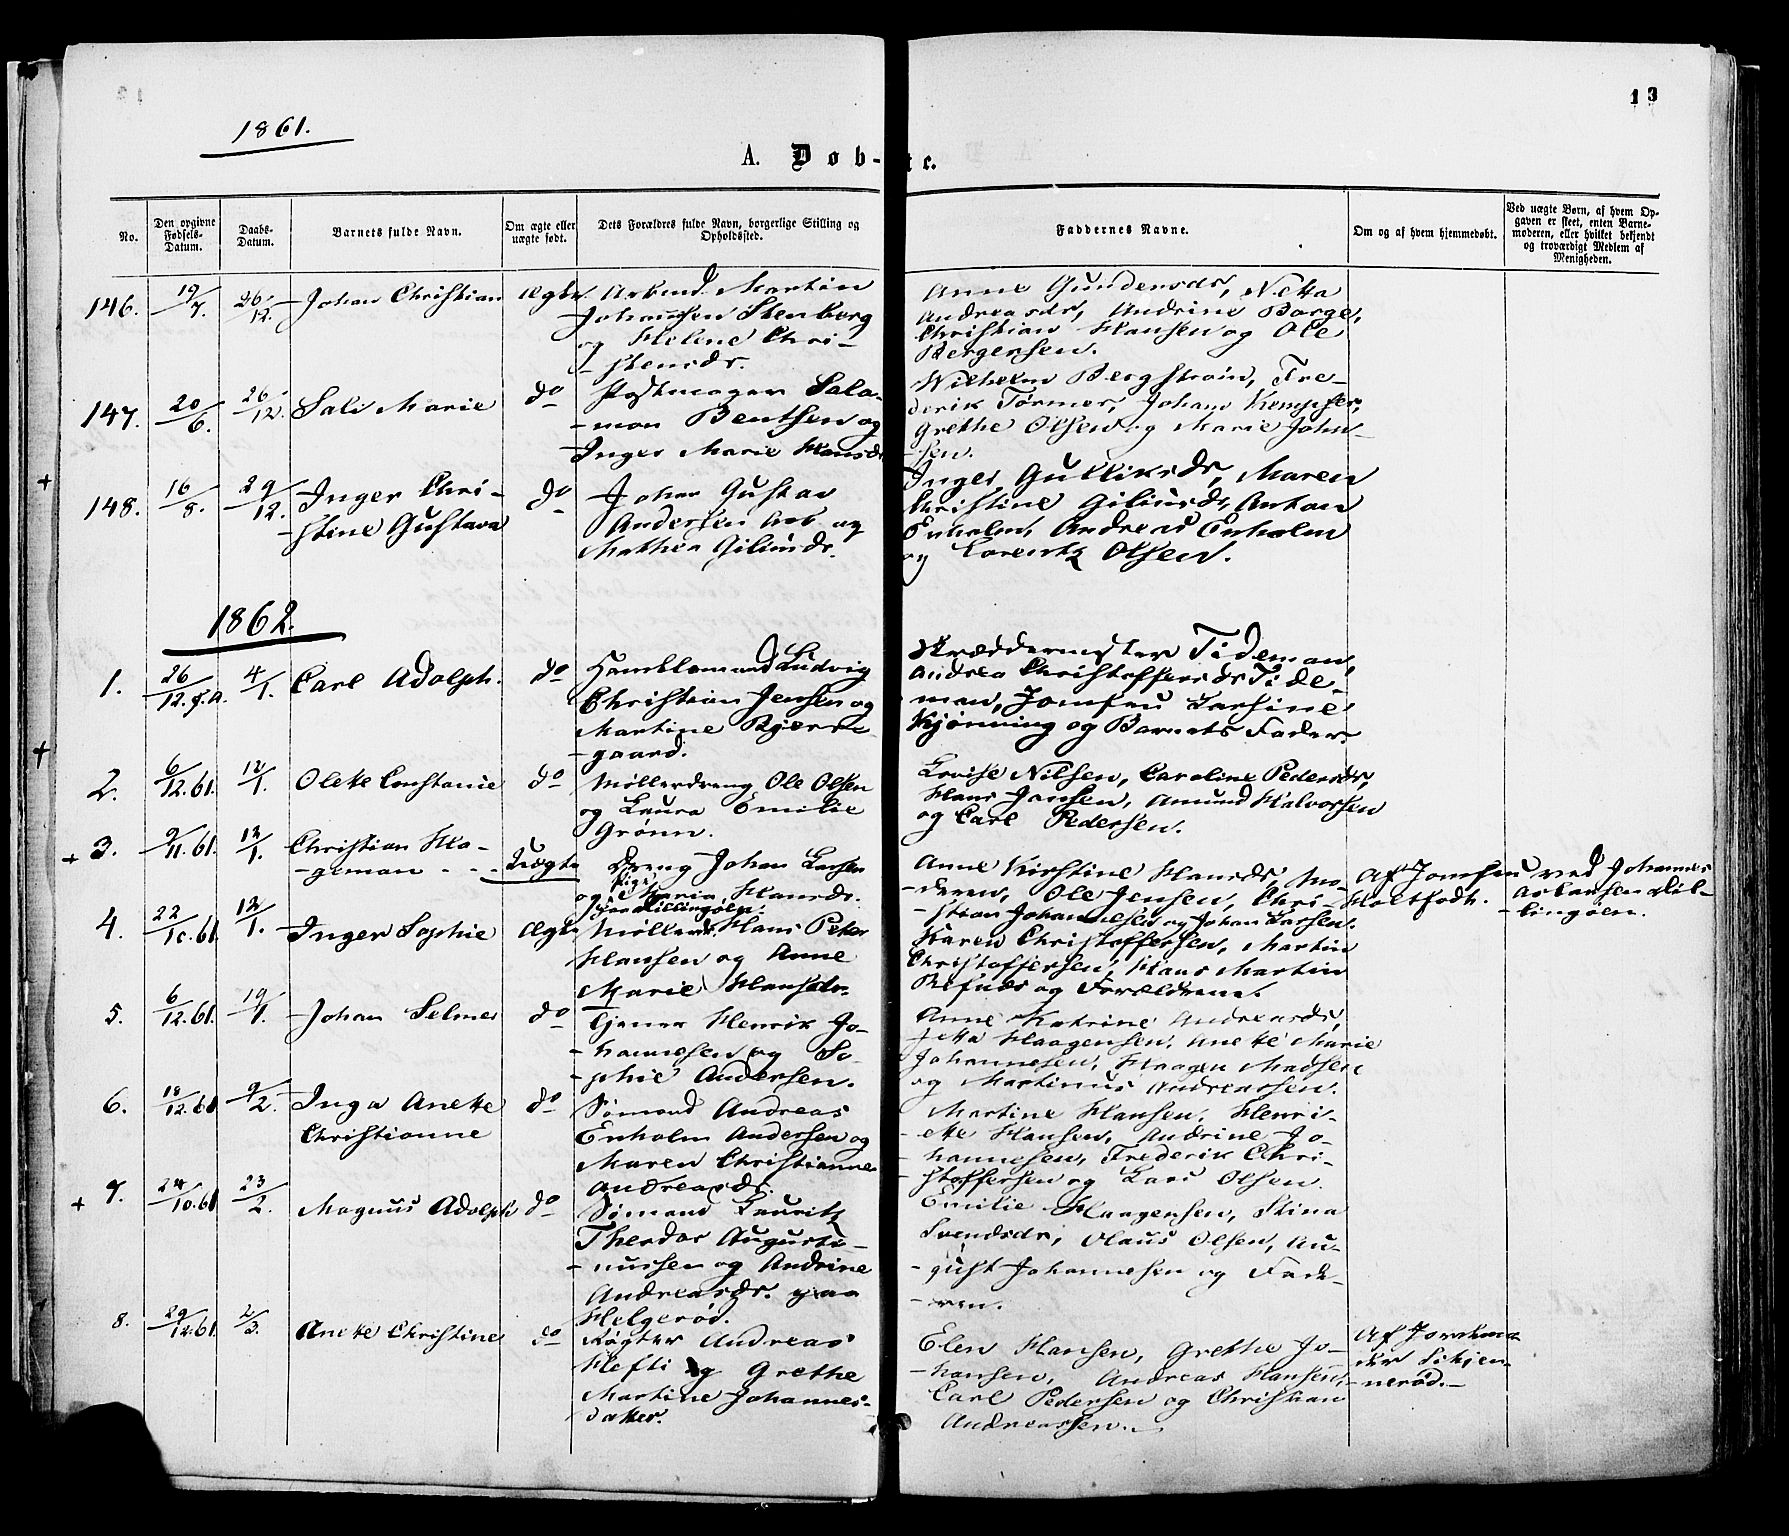 13
1861.
A. Døb-
te.
No.
Den opgivne
Fødsels-
Datum.
Daabs-
Datum.
Barnets fulde Navn.
Om ægte eller
uægte født.
Dets Forældres fulde Navn, borgerlige Stilling og
Opholdssted.
Faddernes Navne.
Om og af hvem hjemmedøbt.
Ved uægte Børn, af hvem Op-
gaven er skeet, enten Barne-
moderen, eller hvilket bekjendt
og troværdigt Medlem af
Menigheden.
146. 19/7. 26/12. Johan Christian ægte Arbmd. Martin
Johannsen Stenberg
og Helene Chri-
stensdr.
Anne Gundersdr, Netta
Andreasdr, Andrine Borge,
Christian Hansen og Ole
Bergersen.
147. 20/6. 26/12. Sali Marie do Salo-
mon Bentsen og
Inger Marie Hansdr
Wilhelm Bergstrøm, Fre-
derik Tørmer, Johan Kempfer,
Grethe Olsen og Marie John-
sen.
+
148. 16/8. 29/12. Inger Chri-
stine Gustava
do Johan Gustav
Andersen Arb. og
Mathea Giliusdr.
Inger Gulliksdr, Maren
Christine Giliusdr, Anton
Enholm, Andreas Enholm
og Lorentz Olsen.
1862.
1. 26/12. f.A. 4/1. Carl Adolph. do Ludvig
Christian Jensen og
Martine Bjerre-
gaard.
Skræddermester Tideman,
Andrea Christoffersdr Tide-
man, Jomfru Larsine
Kjønning og Barnets Fader.
+
2. 6/12.61. 12/1. Olette Constanse do Møllerdreng Ole Olsen
og Laura Emilie
Grønn.
Lovise Nilsen, Caroline Pedersdr,
Hans Jansen, Amund Halvorsen
og Carl Pedersen.
+ 3. 9/11.61. 12/1. Christian Ha-
geman - - -
Uægte Dreng Johan Larsen
og Pige Maria Hansdr.
Anne Kirstine Hansdr, Mo-
deren, Ole Jensen, Chri-
stian Johannesen og Johan Larsen.
Af Jomfru
Holtfodt.
ved Johannes
Aslaksen Dil-
lingøen.
4. 22/10.61 12/1. Inger Sophie ægte Møllersv. Hans Peter
Hansen og Anne
Marie Hansdr.
Karen Christoffersen, Martin
Christoffersen, Hans Martin
Refnes og Forældrene.
5. 6/12.61. 19/1. Johan Selmer do Tjener Henrik Jo-
hannesen og So-
phie Andersen.
Anne Katrine Andreasdr,
Jetta Haagensen, Anette Marie
Johannesen, Haagen Madsen
og Martinus Andreassen.
6. 18/12.61 9/2. Inga Anette
Christianne
do Sømand Andreas
Enholm Andersen og
Maren Christianne
Andreasdr.
Martine Hansen, Henri-
ette Hansen, Andrine Jo-
hannesen, Frederik Chri-
stoffersen og Lars Olsen.
+ 7. 24/10.61 23/2. Magnus Adolph do Sømand Lauritz
Theodor Augusti-
nussen og Andrine
Andreasdr. paa
Helgerød.
Emilie Haagensen, Stina
Svendsdr, Olaus Olsen, Au-
gust Johannesen og Fade-
ren.
8. 29/12.61. 2/3. Anette Christine do Røgter Andreas
Hefti og Grethe
Martine Johannes-
datter.
Elen Hansen, Grethe Jo-
hansen, Andreas Hansen,
Carl Pedersen og Christian
Andreassen.
Af Jordemo-
der Skjen-
nerød.